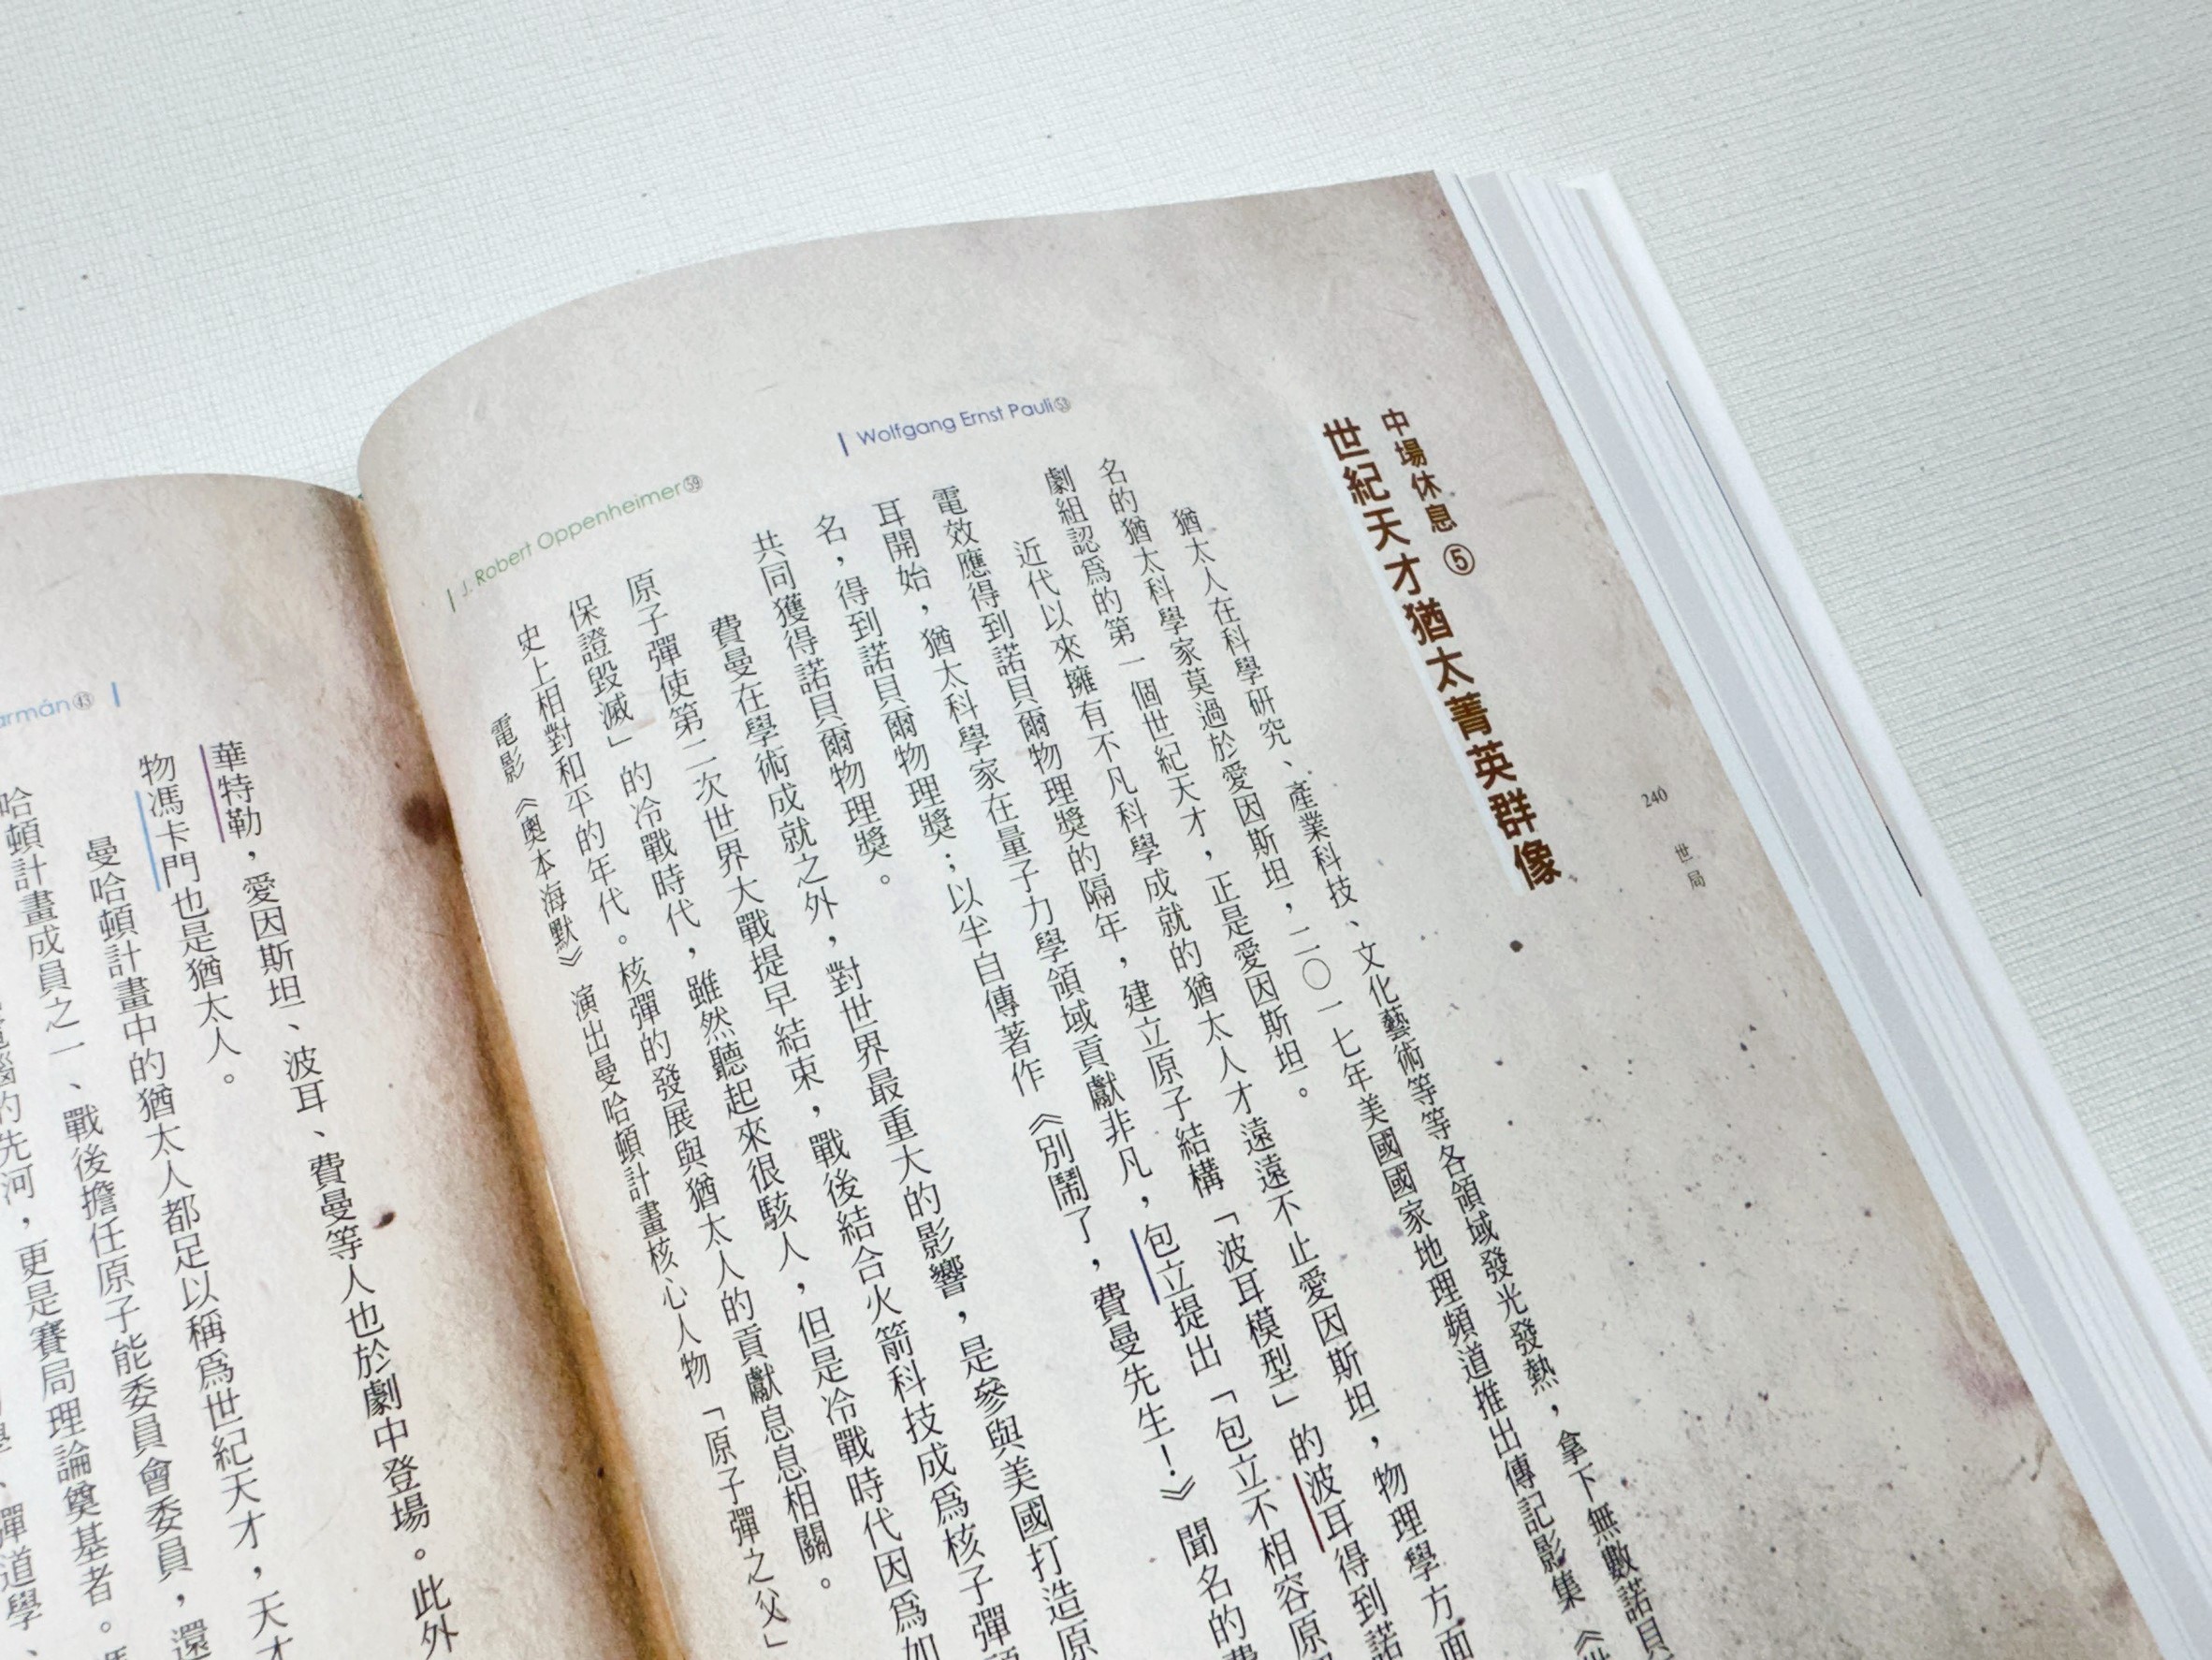 240
世局
中場休息⑤
世紀天才猶太菁英群像
猶太人在科學研究、產業科技、文化藝術等等各領域發光發熱，拿下無數諾貝
名的猶太科學家莫過於愛因斯坦，二〇一七年美國國家地理頻道推出傳記影集《世
劇組認為的第一個世紀天才，正是愛因斯坦。
近代以來擁有不凡科學成就的猶太人才遠遠不止愛因斯坦，物理學方面
電效應得到諾貝爾物理獎的隔年，建立原子結構「波耳模型」的波耳得到諾
耳開始，猶太科學家在量子力學領域貢獻非凡，包立提出「包立不相容原
名，得到諾貝爾物理獎；以半自傳著作《別鬧了，費曼先生！》聞名的費
共同獲得諾貝爾物理獎。
費曼在學術成就之外，對世界最重大的影響，是參與美國打造原
原子彈使第二次世界大戰提早結束，戰後結合火箭科技成為核子彈
保證毀滅」的冷戰時代，雖然聽起來很駭人，但是冷戰時代因為如
史上相對和平的年代。核彈的發展與猶太人的貢獻息息相關。
電影《奧本海默》演出曼哈頓計畫核心人物「原子彈之父」
Wolfgang Ernst Pauli㊼
J. Robert Oppenheimer㊾
armán㊸
華特勒，愛因斯坦、波耳、費曼等人也於劇中登場。此外
物馮卡門也是猶太人。
曼哈頓計畫中的猶太人都足以稱為世紀天才，天才
哈頓計畫成員之一、戰後擔任原子能委員會委員，還
的先河，更是賽局理論奠基者。
彈道學、